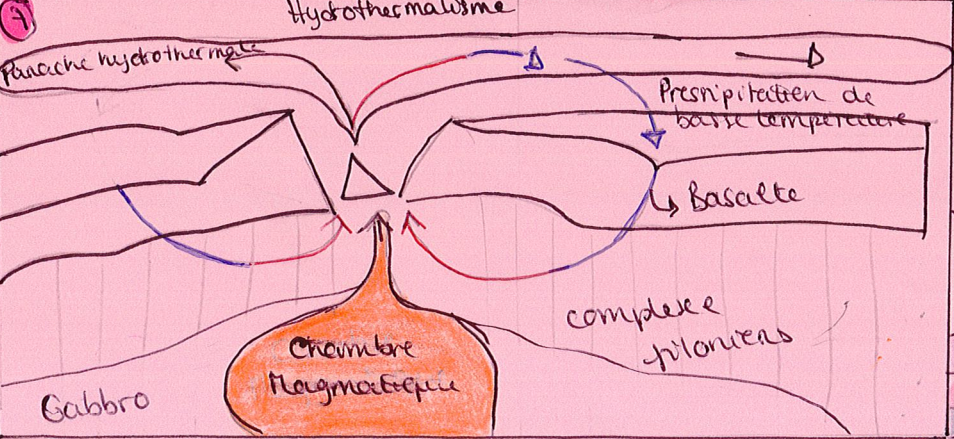 7
Hydrothermalisme
Panache hydrothermale
Presnipitation de
basse temperature
Basalte
complexe
filoniens
Chambre
Magmatique
Gabbro